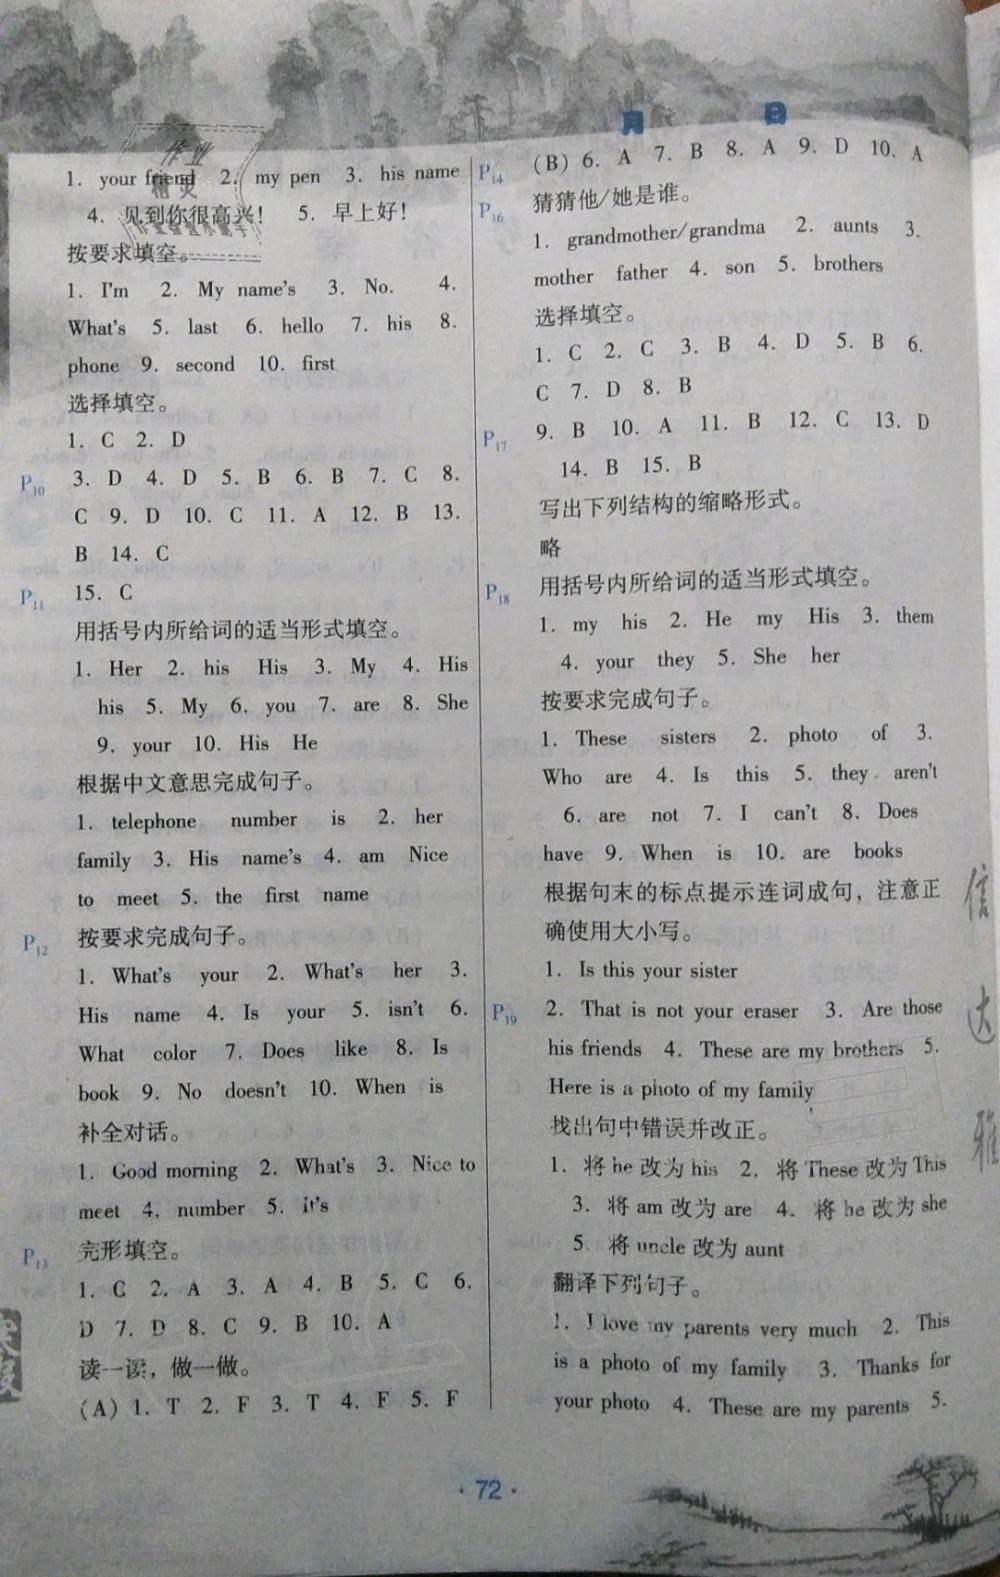 月 日
作业
精灵
1. your friend 2. my pen 3. his name
4. 见到你很高兴! 5. 早上好!
按要求填空。
1. I'm 2. My name's 3. No. 4.
What's 5. last 6. hello 7. his 8.
phone 9. second 10. first
选择填空。
1. C 2. D
P10 3. D 4. D 5. B 6. B 7. C 8.
C 9. D 10. C 11. A 12. B 13.
B 14. C
P11 15. C
用括号内所给词的适当形式填空。
1. Her 2. his His 3. My 4. His
his 5. My 6. you 7. are 8. She
9. your 10. His He
根据中文意思完成句子。
1. telephone number is 2. her
family 3. His name's 4. am Nice
to meet 5. the first name
P12 按要求完成句子。
1. What's your 2. What's her 3.
His name 4. Is your 5. isn't 6.
What color 7. Does like 8. Is
book 9. No doesn't 10. When is
补全对话。
1. Good morning 2. What's 3. Nice to
meet 4. number 5. It's
P13 完形填空。
1. C 2. A 3. A 4. B 5. C 6.
D 7. D 8. C 9. B 10. A
读一读，做一做。
(A) 1. T 2. F 3. T 4. F 5. F
P14 (B) 6. A 7. B 8. A 9. D 10. A
P16 猜猜他/她是谁。
1. grandmother/grandma 2. aunts 3.
mother father 4. son 5. brothers
选择填空。
1. C 2. C 3. B 4. D 5. B 6.
C 7. D 8. B
P17 9. B 10. A 11. B 12. C 13. D
14. B 15. B
写出下列结构的缩略形式。
略
P18 用括号内所给词的适当形式填空。
1. my his 2. He my His 3. them
4. your they 5. She her
按要求完成句子。
1. These sisters 2. photo of 3.
Who are 4. Is this 5. they aren't
6. are not 7. I can't 8. Does
have 9. When is 10. are books
根据句末的标点提示连词成句，注意正
确使用大小写。
1. Is this your sister
P19 2. That is not your eraser 3. Are those
his friends 4. These are my brothers 5.
Here is a photo of my family
找出句中错误并改正。
1. 将 he 改为 his 2. 将 These 改为 This
3. 将 am 改为 are 4. 将 he 改为 she
5. 将 uncle 改为 aunt
翻译下列句子。
1. I love my parents very much 2. This
is a photo of my family 3. Thanks for
your photo 4. These are my parents 5.
信
达
雅
· 72 ·